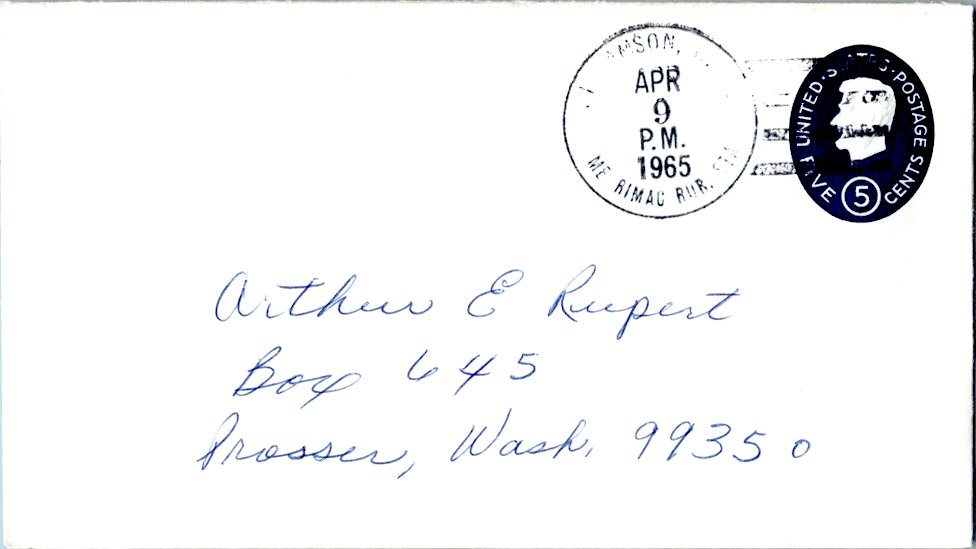 APR
9
P.M.
1965
RUR. STA
UNITED STATES POSTAGE
FIVE 5 CENTS
Arthur E Rupert
Box 645
Prosser, Wash. 99350